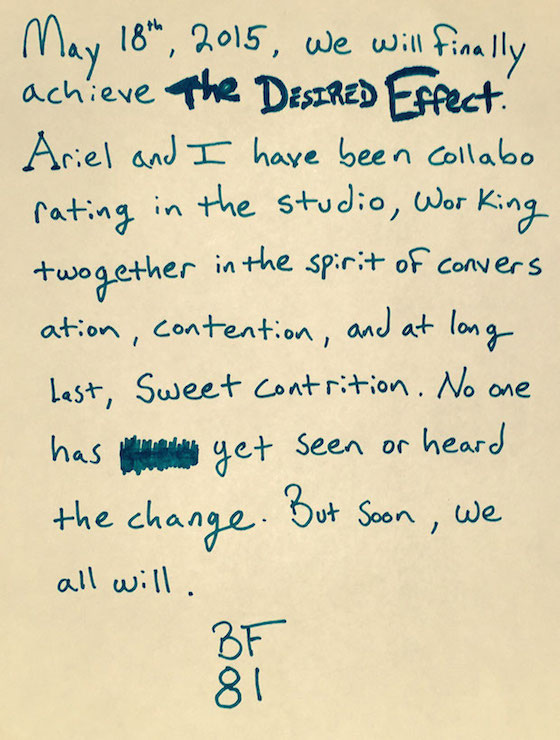 May 18th, 2015, we will finally
achieve The DESIRED Effect.
Ariel and I have been collabo
rating in the studio, Working
twogether in the spirit of convers
ation, contention, and at long
Last, Sweet contrition. No one
has yet seen or heard
the change. But soon, we
all will.
BF
81